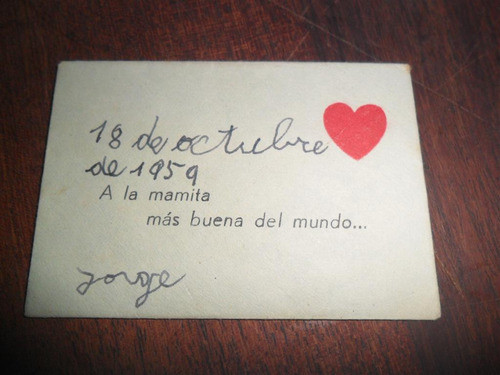 18 de octubre
de 1959
A la mamita
más buena del mundo...
Jorge